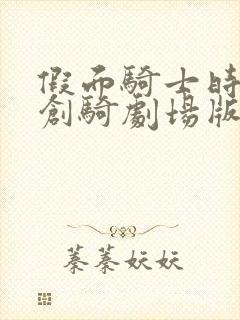 假面騎士時
創騎劇場版
蓁蓁妖妖